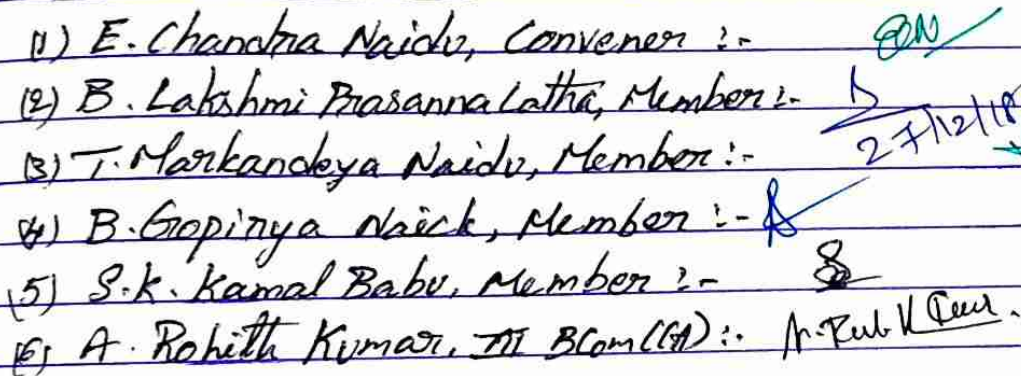 (1) E. Chandra Naidu, Convener :-
(2) B. Lakshmi Prasanna Latha, Member :-
27/12/18
(3) T. Markandeya Naidu, Member :-
(4) B. Gopinya Naick, Member :-
(5) S.K. Kamal Babu, Member :-
(6) A. Rohith Kumar, III BCom(CA) :-